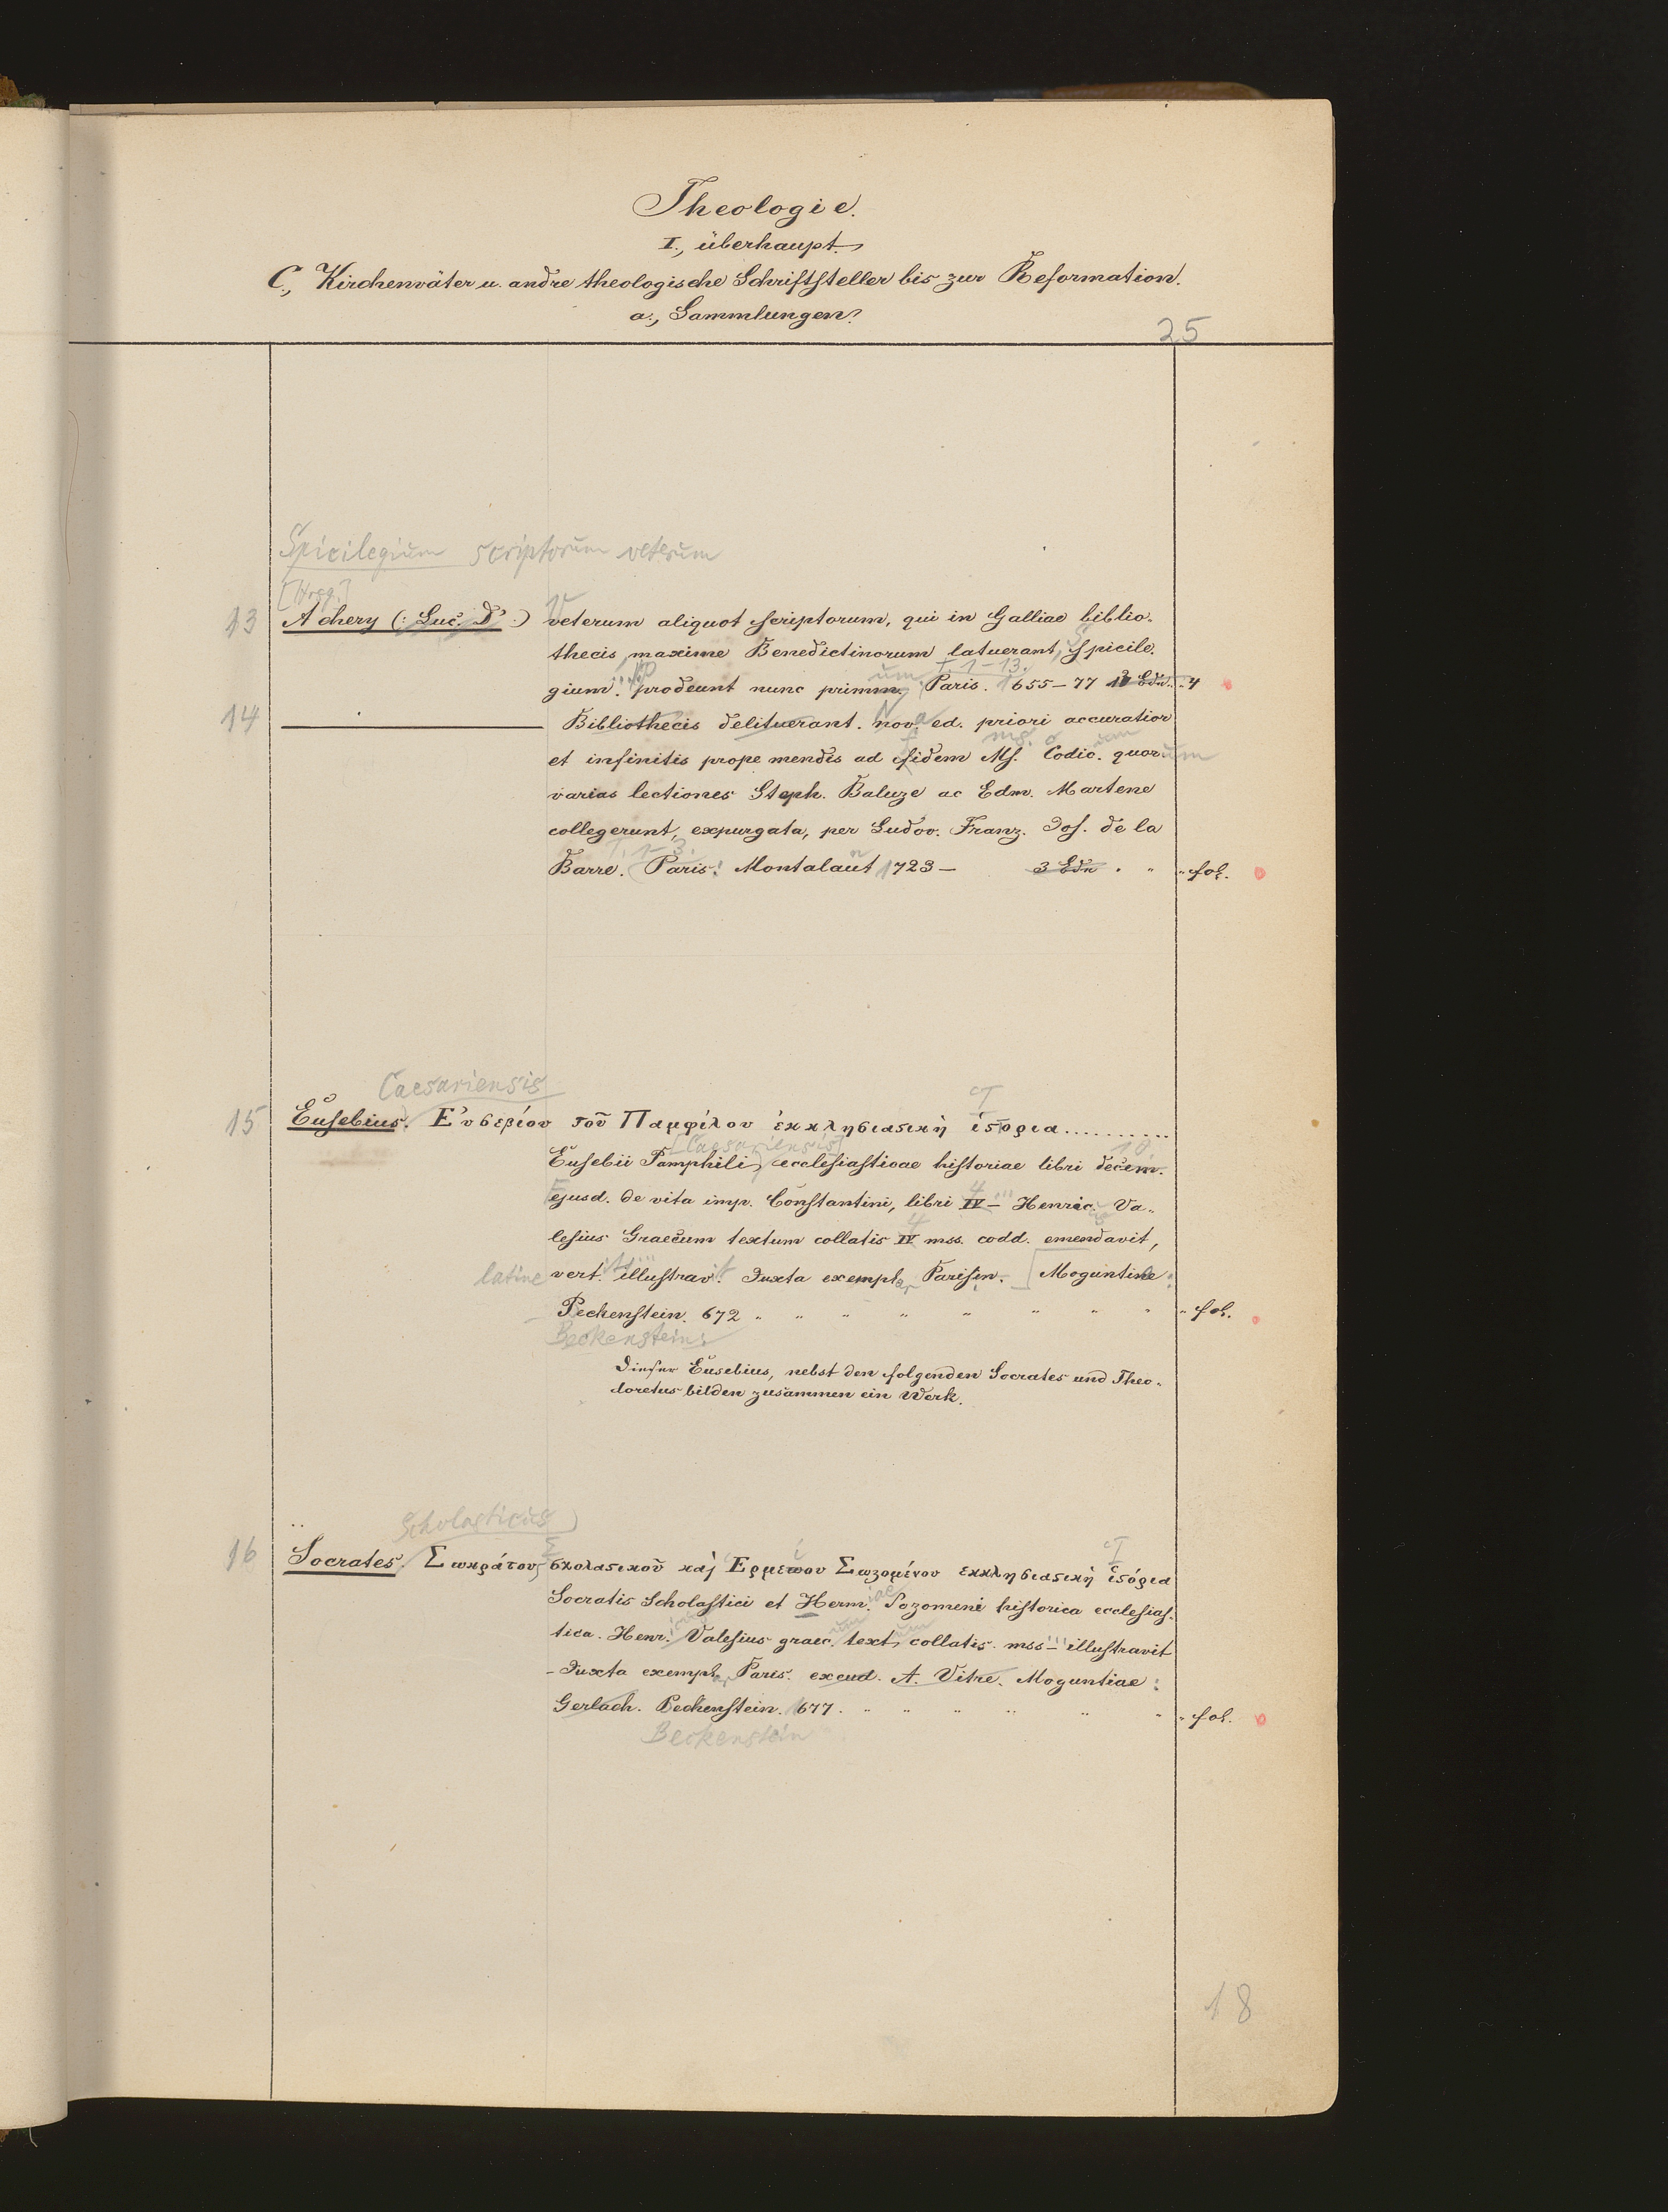 Theologie.
I., überhaupt.
C., Kirchenväter u. andre theologische Schriftsteller bis zur Reformation.
a., Sammlungen.
25
Spicilegium scriptorum veterum
[Hrgg.]
13 Achery (: Luc. D' :) veterum aliquot scriptorum, qui in Galliae biblio-
thecis, maxime Benedictinorum latuerant, Spicile-
T. 1-13.
gium. prodeunt nunc primum, Paris. 1655-77 13 Bdn. 4
14 Bibliothecis delituerant. nova ed. priori accuratior
et infinitis prope mendis ad fidem Ms. Codic. quorum
varias lectiones Steph. Baluze ac Edm. Martene
collegerunt, expurgata, per Ludov. Franz. Jos. de la
T. 1-3.
Barre. Paris: Montalant 1723 - 3 Bdn " " fol.
Caesariensis
15 Eusebius. Ευσεβίου τοῦ Παμφίλου ἐκκλησιαϛικὴ ἱϛορια..........
[Caesariensis] 10
Eusebii Pamphili, ecclesiasticae historiae libri decem.
4
ejusd. de vita imp. Constantini, libri IV - Henric. Va-
4
lesius Graecum textum collatis IV mss. codd. emendavit,
latine vert. illustrav. Juxta exempl. Parisin. [Moguntiae:
Peckenstein. 672 " " " " " " " " fol.
Beckenstein
Dieser Eusebius, nebst den folgenden Socrates und Theo-
doretus bilden zusammen ein Werk.
Scholasticus
16 Socrates. Σωκράτους σχολαϛικοῦ καὶ Ερμείου Σωζομένου εκκλησιαϛικὴ ἱϛόρια
Socratis Scholastici et Herm. Sozomeni historica ecclesias-
tica. Henr. Valesius graec. text. collatis mss - illustravit
- Juxta exempl. Paris. excud. A. Vitre. Moguntiae:
Gerlach. Peckenstein. 1677. " " " " " " fol.
Beckenstein
18